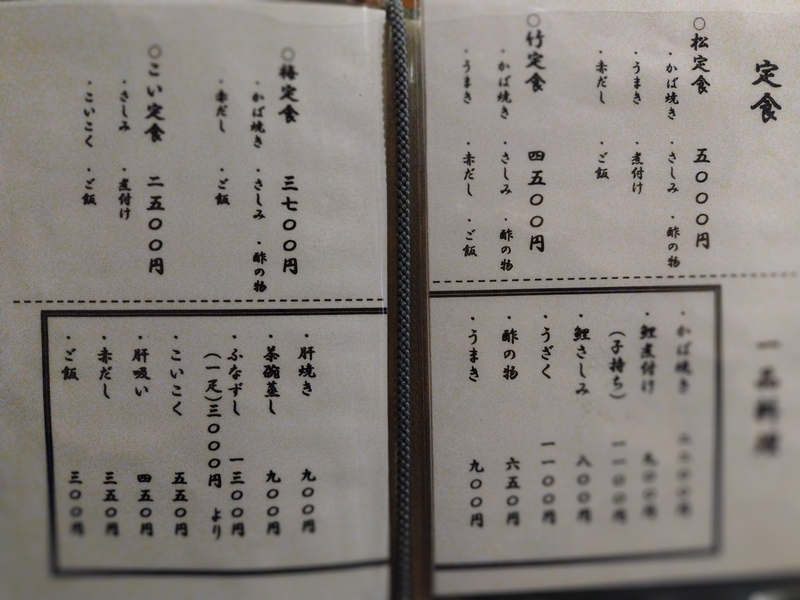 定食
○松定食 五〇〇〇円
・かば焼き ・さしみ ・酢の物
・うまき ・煮付け
・赤だし ・ご飯
○竹定食 四五〇〇円
・かば焼き ・さしみ ・酢の物
・うまき ・赤だし ・ご飯
○梅定食 三七〇〇円
・かば焼き ・さしみ ・酢の物
・赤だし ・ご飯
○こい定食 二五〇〇円
・さしみ ・煮付け
・こいこく ・ご飯
一品料理
・かば焼き
・鯉煮付け 九〇〇円
(子持ち) 一一〇〇円
・鯉さしみ 八〇〇円
・うざく 一一〇〇円
・酢の物 六五〇円
・うまき 九〇〇円
・肝焼き 九〇〇円
・茶碗蒸し 九〇〇円
・ふなずし 一三〇〇円
(一疋)三〇〇〇円 より
・こいこく 五五〇円
・肝吸い 四五〇円
・赤だし 三五〇円
・ご飯 三〇〇円